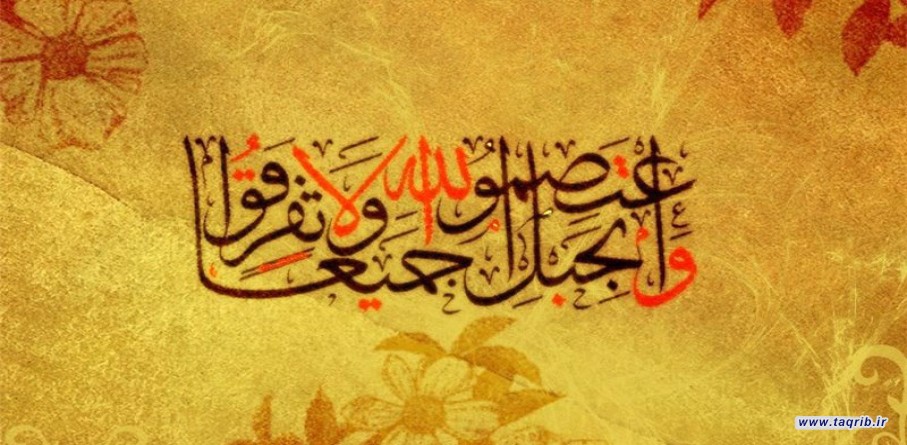 واعتصموا بحبل الله جميعا ولا تفرقوا
www.taqrib.ir